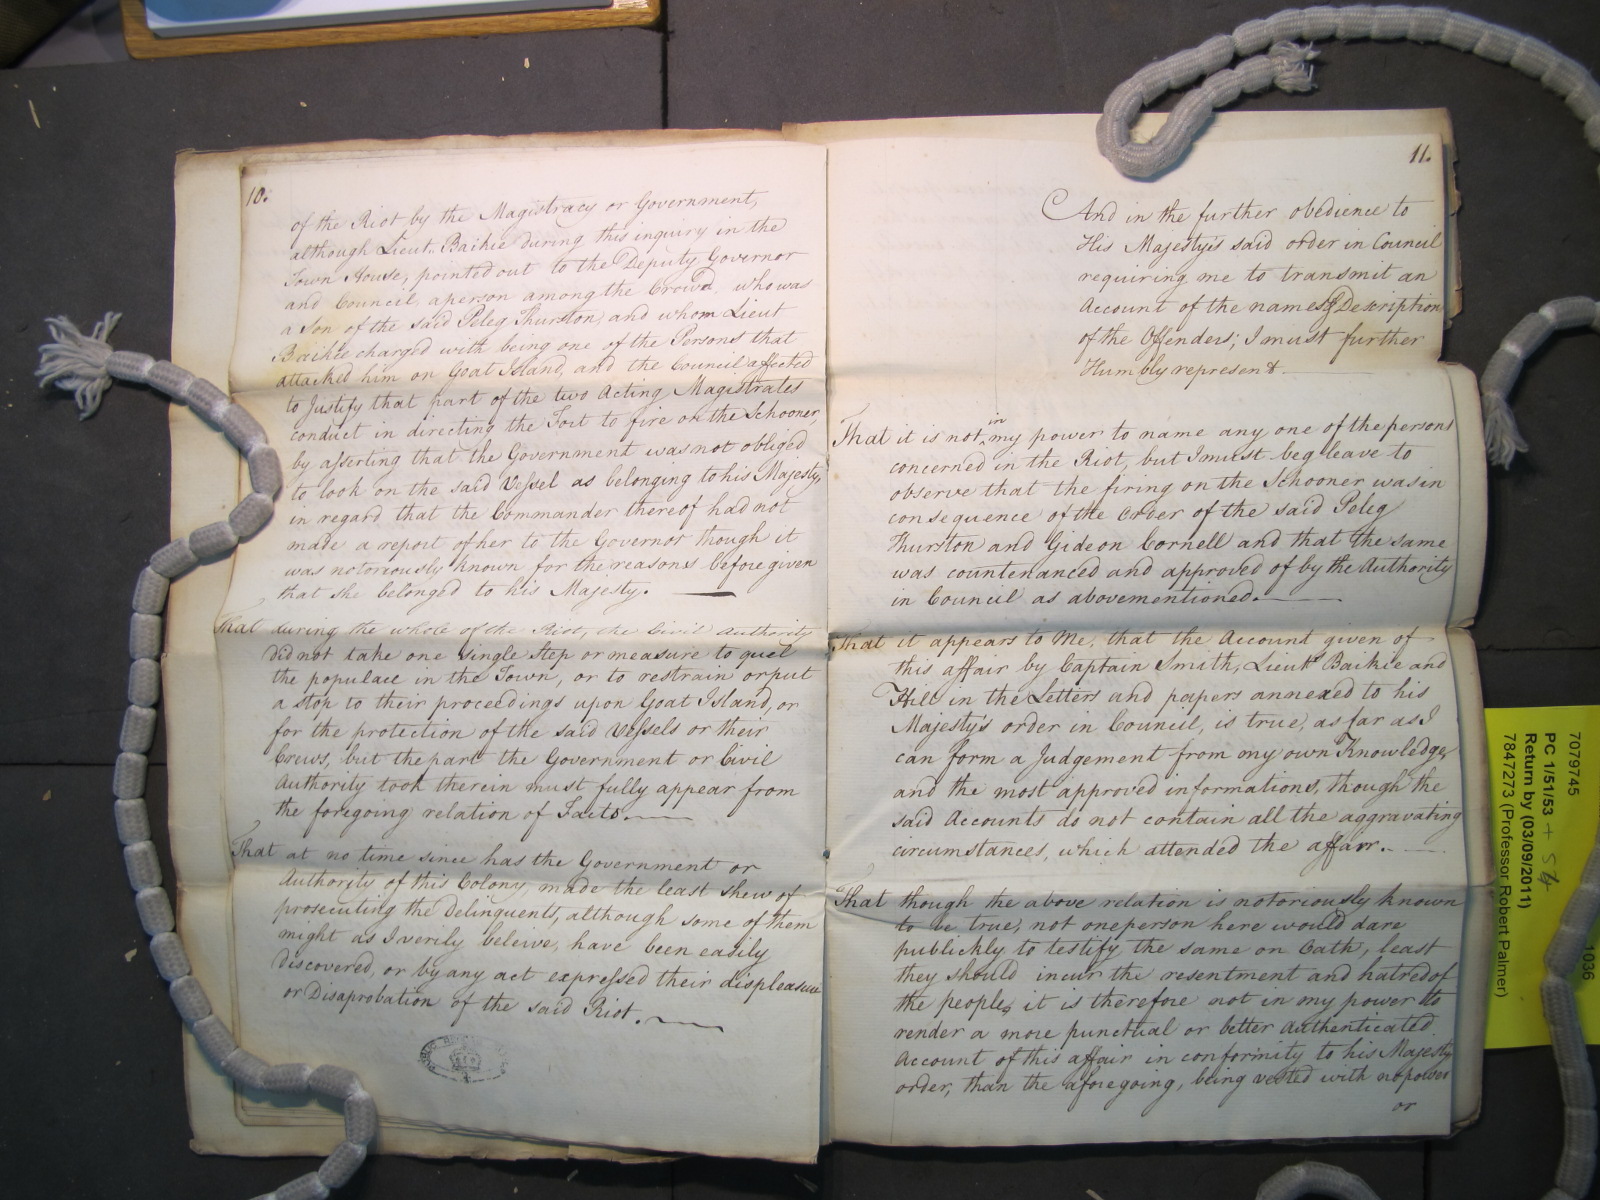 10.
of the Riot by the Magistracy or Government,
although Lieut. Baikie during this inquiry in the
Town House, pointed out to the Deputy Governor
and Council, a person among the Crowd, who was
a Son of the said Peleg Thurston, and whom Lieut
Baikie charged with being one of the Persons that
attacked him on Goat Island, and the Council affected
to Justify that part of the two Acting Magistrates
conduct in directing the Fort to fire on the Schooner,
by asserting that the Government was not obliged
to look on the said Vessel as belonging to his Majesty,
in regard that the Commander thereof had not
made a report of her to the Governor though it
was notoriously known for the reasons before given
that she belonged to his Majesty.
That during the whole of the Riot, the Civil Authority
did not take one single Step or measure to quel
the populace in the Town, or to restrain or put
a stop to their proceedings upon Goat Island, or
for the protection of the said Vessels or their
Crews, but the part the Government or Civil
Authority took therein must fully appear from
the foregoing relation of Facts.
That at no time since has the Government or
Authority of this Colony, made the least shew of
prosecuting the Delinquents, although some of them
might as I verily beleive, have been easily
discovered, or by any act expressed their displeasure
or Disaprobation of the said Riot.
11.
And in the further obedience to
His Majesty's said order in Council
requiring me to transmit an
Account of the names & Description
of the Offenders; I must further
Humbly represent.
That it is not in my power to name any one of the persons
concerned in the Riot, but I must beg leave to
observe that the firing on the Schooner was in
consequence of the Order of the said Peleg
Thurston and Gideon Cornell and that the same
was countenanced and approved of by the Authority
in Council as abovementioned.
That it appears to Me, that the Account given of
this affair by Captain Smith, Lieut Baikie and
Hill in the Letters and papers annexed to his
Majesty's order in Council, is true, as far as I
can form a Judgement from my own Knowledge,
and the most approved informations, though the
said Accounts do not contain all the aggravating
circumstances, which attended the affair.
That though the above relation is notoriously known
to be true, not one person here would dare
publickly to testify the same on Oath, least
they should incur the resentment and hatred of
the people, it is therefore not in my power to
render a more punctual or better authenticated
Account of this affair in conformity to his Majesty
order, than the aforegoing, being vested with no power
or
7079745
PC 1/51/53 + 54
Return by (03/09/2011)
7847273 (Professor Robert Palmer)
1036